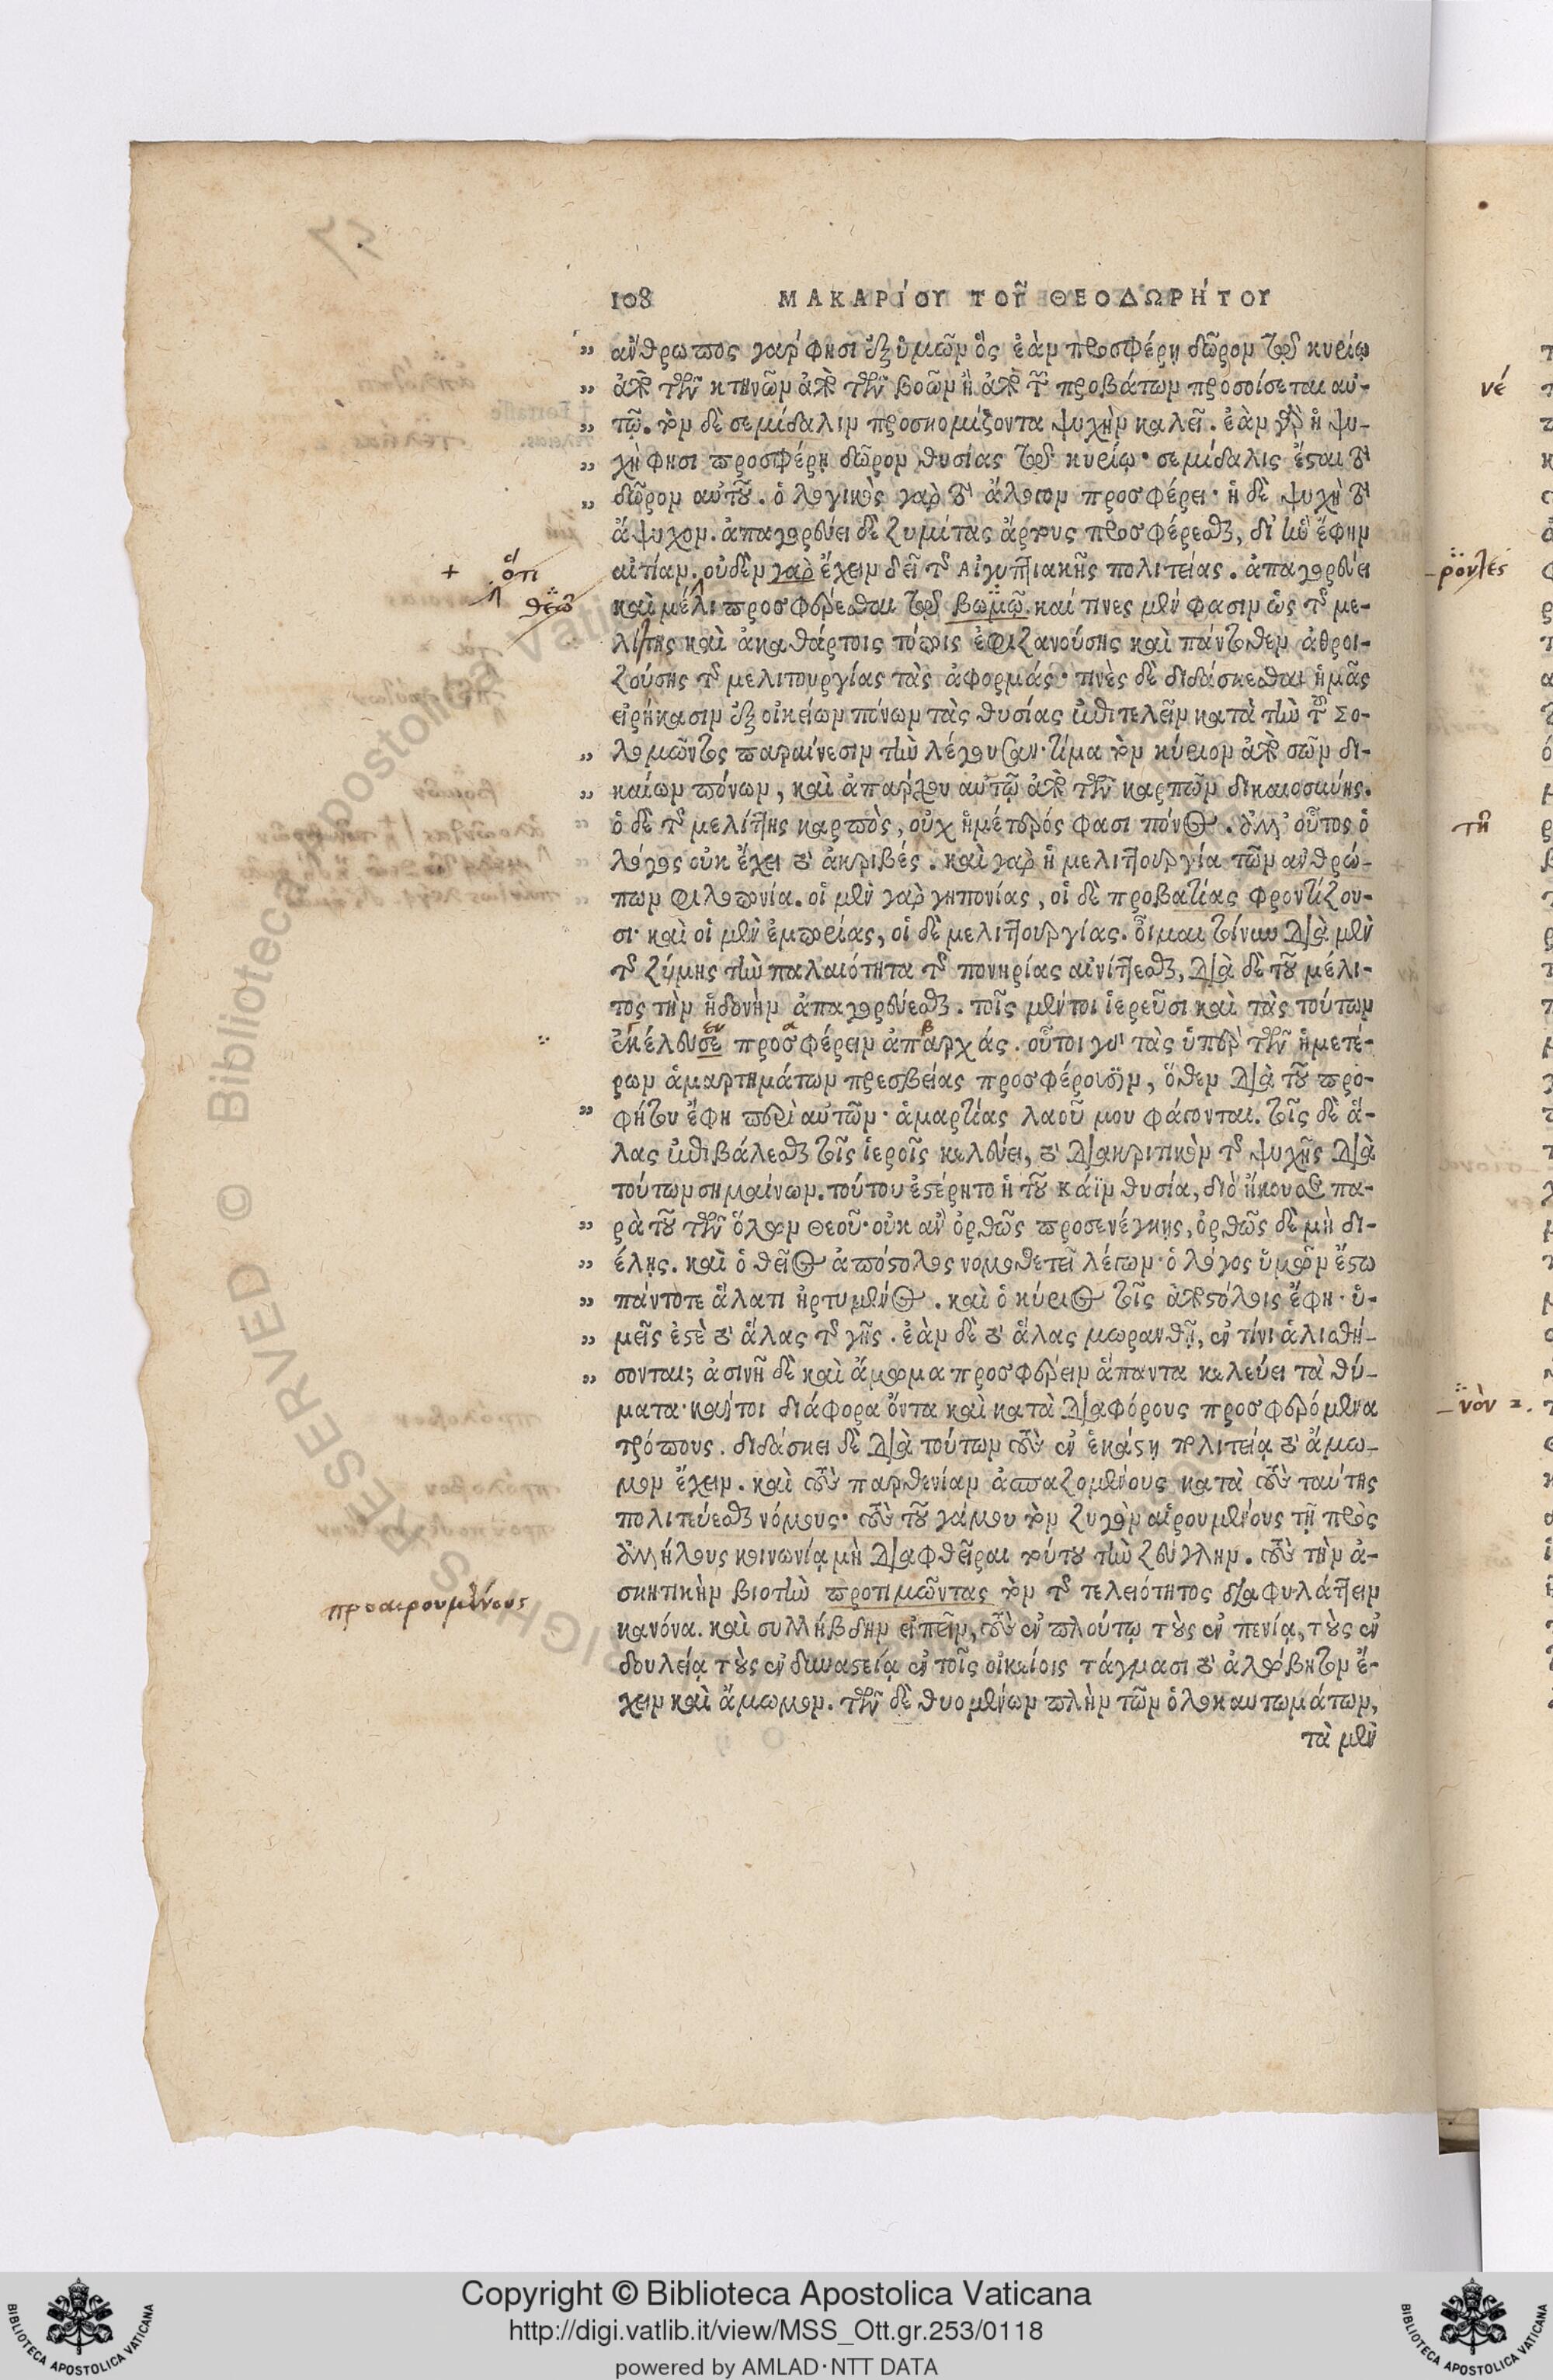 108 ΜΑΚΑΡΊΟΥ ΤΟΥ͂ ΘΕΟΔΩΡΉΤΟΥ
„ ἄνθρωπος γάρ φησι ἐξ ὑμῶν ὃς ἐὰν προσφέρῃ δῶρον τῷ κυρίῳ
„ ἀπὸ τῶν κτηνῶν ἀπὸ τῶν βοῶν ἢ ἀπὸ τῶν προβάτων προσοίσεται αὐ-
„ τῷ. τὸν δὲ σεμίδαλιν προσκομίζοντα ψυχὴν καλεῖ. ἐὰν γὰρ ἡ ψυ-
„ χὴ φησι προσφέρῃ δῶρον θυσίας τῷ κυρίῳ· σεμίδαλις ἔσται τὸ
„ δῶρον αὐτοῦ. ὁ λογικὸς γὰρ τὸ ἄλογον προσφέρει· ἡ δὲ ψυχὴ τὸ
ἄψυχον. ἀπαγορεύει δὲ ζυμίτας ἄρτους προσφέρεσθαι, δι' ἣν ἔφην
αἰτίαν. οὐδὲν γὰρ ἔχειν δεῖ τῆς Αἰγυπτιακῆς πολιτείας. ἀπαγορεύει
καὶ μέλι προσφέρεσθαι τῷ βωμῷ. καί τινες μὲν φασιν ὡς τῆς με-
λίττης καὶ ἀκαθάρτοις τόποις ἐφιζανούσης καὶ πάντοθεν ἀθροι-
ζούσης τῆς μελιτουργίας τὰς ἀφορμάς· τινὲς δὲ διδάσκεσθαι ἡμᾶς
εἰρήκασιν ἐξ οἰκείων πόνων τὰς θυσίας ἐπιτελεῖν κατὰ τὴν τοῦ Σο-
„ λομῶντος παραίνεσιν τὴν λέγουσαν· τίμα τὸν κύριον ἀπὸ σῶν δι-
„ καίων πόνων, καὶ ἀπάρχου αὐτῷ ἀπὸ τῶν καρπῶν δικαιοσύνης.
ὁ δὲ τῆς μελίττης καρπὸς, οὐχ ἡμέτερός φασι πόνος. ἀλλ' οὗτος ὁ
λόγος οὐκ ἔχει τὸ ἀκριβές. καὶ γὰρ ἡ μελιττουργία τῶν ἀνθρώ-
πων φιλοπονία. οἱ μὲν γὰρ γηπονίας, οἱ δὲ προβατίας φροντίζου-
σι· καὶ οἱ μὲν ἐμπορίας, οἱ δὲ μελιττουργίας. οἶμαι τοίνυν διὰ μὲν
τῆς ζύμης τὴν παλαιότητα τῆς πονηρίας αἰνίττεσθαι, διὰ δὲ τοῦ μέλι-
τος τὴν ἡδονὴν ἀπαγορεύεσθαι. τοῖς μέντοι ἱερεῦσι καὶ τὰς τούτων
ἐκέλευσε προσφέρειν ἀπαρχάς. οὗτοι γὰρ τὰς ὑπὲρ τῶν ἡμετέ-
ρων ἁμαρτημάτων πρεσβείας προσφέρουσιν, ὅθεν διὰ τοῦ προ-
„ φήτου ἔφη περὶ αὐτῶν· ἁμαρτίας λαοῦ μου φάγονται. τοῖς δὲ ἅ-
λας ἐπιβάλεσθαι τοῖς ἱεροῖς κελεύει, τὸ διακριτικὸν τῆς ψυχῆς διὰ
τούτων σημαίνων. τούτου ἐστέρητο ἡ τοῦ Κάϊν θυσία, διὸ ἤκουσε πα-
„ ρὰ τοῦ τῶν ὅλων Θεοῦ· οὐκ ἂν ὀρθῶς προσενέγκῃς, ὀρθῶς δὲ μὴ δι-
„ έλῃς. καὶ ὁ θεῖος ἀπόστολος νομοθετεῖ λέγων· ὁ λόγος ὑμῶν ἔστω
„ πάντοτε ἅλατι ἠρτυμένος. καὶ ὁ κύριος τοῖς ἀποστόλοις ἔφη· ὑ-
„ μεῖς ἐστὲ τὸ ἅλας τῆς γῆς. ἐὰν δὲ τὸ ἅλας μωρανθῇ, ἐν τίνι ἁλισθή-
„ σονται; ἀσινῆ δὲ καὶ ἄμωμα προσφέρειν ἅπαντα κελεύει τὰ θύ-
ματα· καίτοι διάφορα ὄντα καὶ κατὰ διαφόρους προσφερόμενα
τρόπους. διδάσκει δὲ διὰ τούτων τοὺς ἐν ἑκάστῃ πολιτείᾳ τὸ ἄμω-
μον ἔχειν. καὶ τοὺς παρθενίαν ἀσπαζομένους κατὰ τοὺς ταύτης
πολιτεύεσθαι νόμους· τοὺς τοῦ γάμου τὸν ζυγὸν αἱρουμένους τῇ πρὸς
ἀλλήλους κοινωνίᾳ μὴ διαφθεῖραι τούτου τὴν ζεύγλην. τοὺς τὴν ἀ-
σκητικὴν βιοτὴν προτιμῶντας τὸν τῆς τελειότητος διαφυλάττειν
κανόνα. καὶ συλλήβδην εἰπεῖν, τοὺς ἐν πλούτῳ τοὺς ἐν πενίᾳ, τοὺς ἐν
δουλείᾳ τοὺς ἐν δυναστείᾳ ἐν τοῖς οἰκείοις τάγμασι τὸ ἀλώβητον ἔ-
χειν καὶ ἄμωμον. τῶν δὲ θυομένων πλὴν τῶν ὁλοκαυτωμάτων,
τὰ μὲν
+ ὅτι
θεῷ
προαιρουμένους
νέ
ροντες
τῇ
νὸν 2.
RIGHTS RESERVED © Biblioteca Apostolica Vaticana
Copyright © Biblioteca Apostolica Vaticana
http://digi.vatlib.it/view/MSS_Ott.gr.253/0118
powered by AMLAD·NTT DATA
BIBLIOTECA APOSTOLICA VATICANA
BIBLIOTECA APOSTOLICA VATICANA